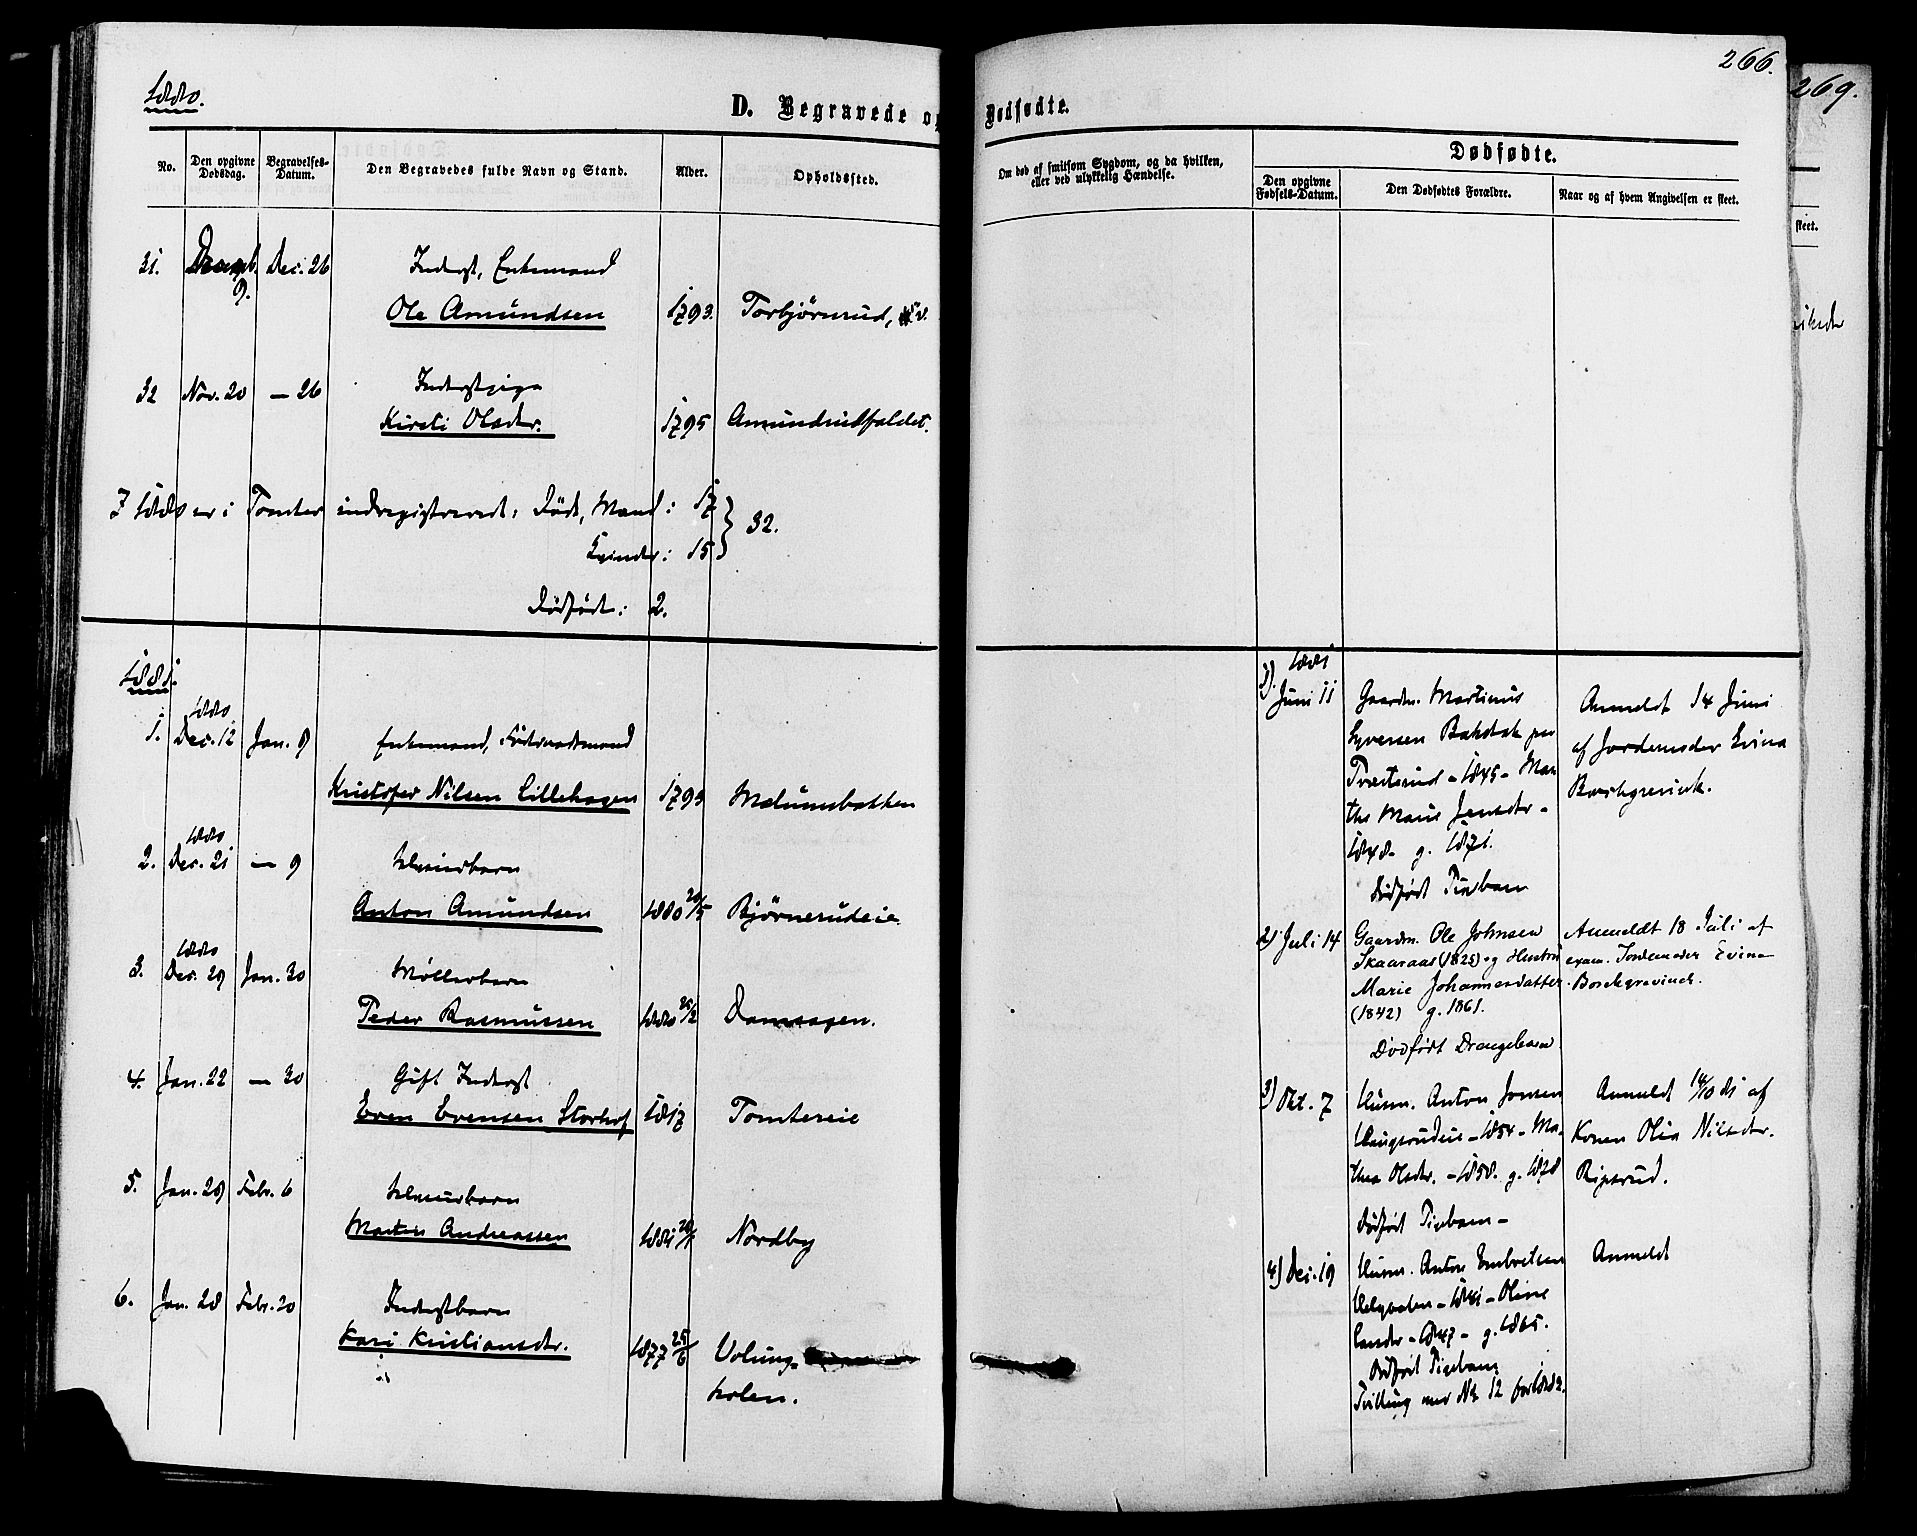 1880.
D. Begravede og
No.
Den opgivne Dødsdag.
Begravelses-Datum.
Den Begravedes fulde Navn og Stand.
Alder.
Opholdssted.
31. Decemb. 9. Dec. 26 Inderst, Enkemand
Ole Amundsen 1793. Torbjørnrud,
32 Nov. 20 — 26 Inderstpige
Kirsti Olsdtr. 1795 Amundrudfaldet.
I 1880 er i Tomter indregistreret: Død, Mand: 17
Kvinder: 15 } 32.
Dødfødt: 2.
1881.
1. 1880 Dec. 12 Jan. 9 Enkemand,
Kristofer Nilsen Lillehagen 1793 Melumsbakken
2. 1880 Dec. 21 — 9
Anton Amundsen 1880 20/5 Bjørnerudeie
3. 1880 Dec. 29 Jan. 30 Møllerbarn
Peder Rasmussen 1880 25/2 Damsagen.
4. Jan. 22 — 30 Gift Inderst
Even Evensen Storhof 1817 Tomtereie
5. Jan. 29 Febr. 6
Martin Andreassen 1881 20/1 Nordby
6. Jan. 28 Febr. 20 Inderstbarn
Kari Kristiansdtr. 1877 25/6 Volung-
holen.
266.
Dødfødte.
Om død af smitsom Sygdom, og da hvilken,
eller ved ulykkelig Hændelse.
Dødfødte.
Den opgivne Fødsels-Datum.
Den Dødfødtes Forældre.
Naar og af hvem Angivelsen er skeet.
1). 1881 Juni 11 Gaardm. Martinus
Syversen Bakstak paa
Tvætsrud - 1845 - Mar-
the Marie Jensdtr -
1848 - g. 1871.
Dødfødt Pigebarn
Anmeldt 14 Juni
af Jordemoder Evina
Borchgrevink.
2) Juli 14 Gaardm. Ole Johnsen
Skaaraas (1825) og Hustru
Marie Johannesdatter
(1842) g. 1861.
Dødfødt Drengebarn
Anmeldt 18 Juli af
exam. Jordemoder Evina
Borchgrevinck.
3) Okt. 7 Husm. Anton Jonsen
Haugsrudeie - 1854 - Ma-
thea Olsdtr. - 1858. g. 1878
Dødfødt Pigebarn -
Anmeldt 14/10 81 af
Konen Olia Nilsdtr.
Ripsrud.
4) Dec. 19 Husm. Anton Embretsen
- 1841 - Oline
Larsdtr - 1847 - g. 1865.
Dødfødt Pigebarn
Tvilling med No 12
Anmeldt
269.
skeet.